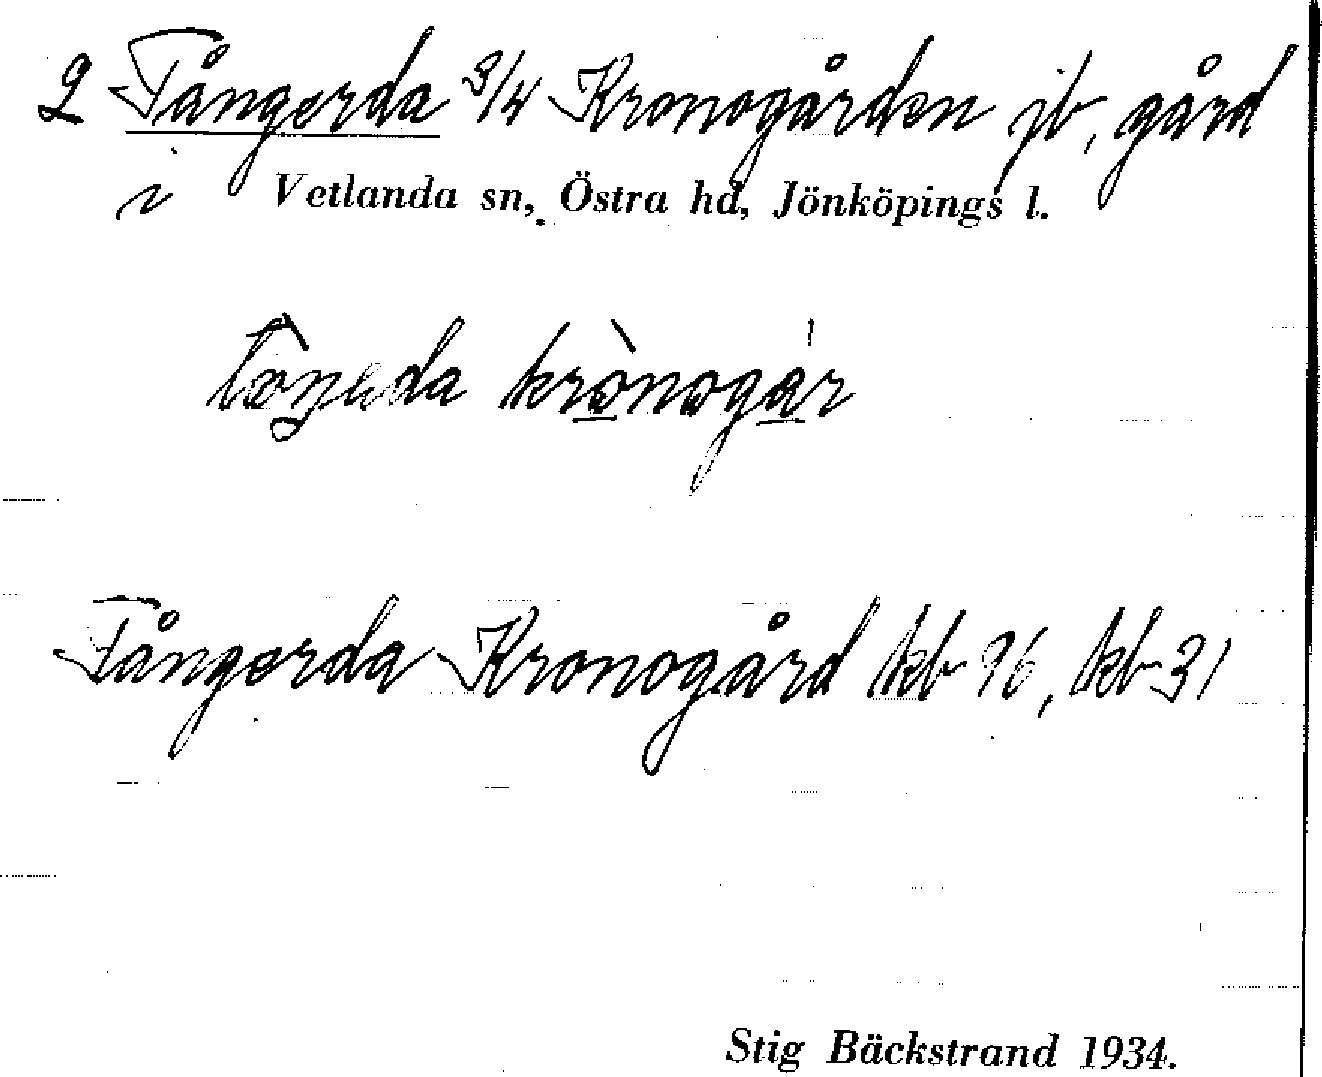 2 Tångerda 3/4 Kronogården jb, gård
i Vetlanda sn, Östra hd, Jönköpings l.
kr<u>ò</u>nog<u>a</u>̍r
Tångerda Kronogård kb 96, kb 31
Stig Bäckstrand 1934.